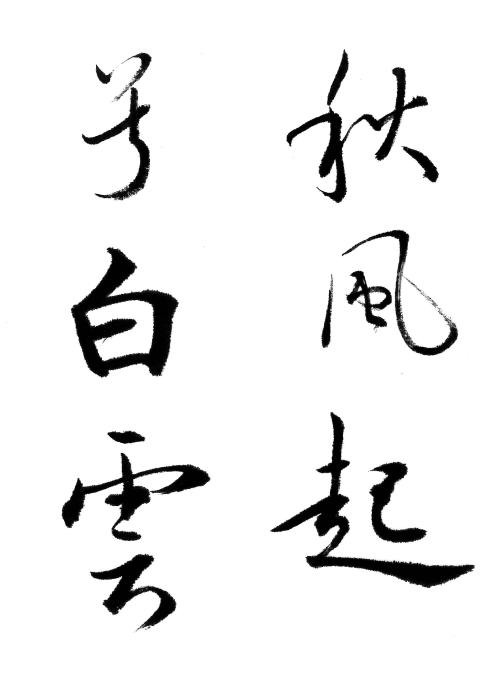 秋風起
兮白雲